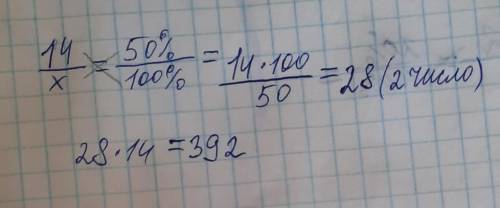 14/x = 50%/100% = 14·100/50 = 28 (2 число)
28·14 = 392